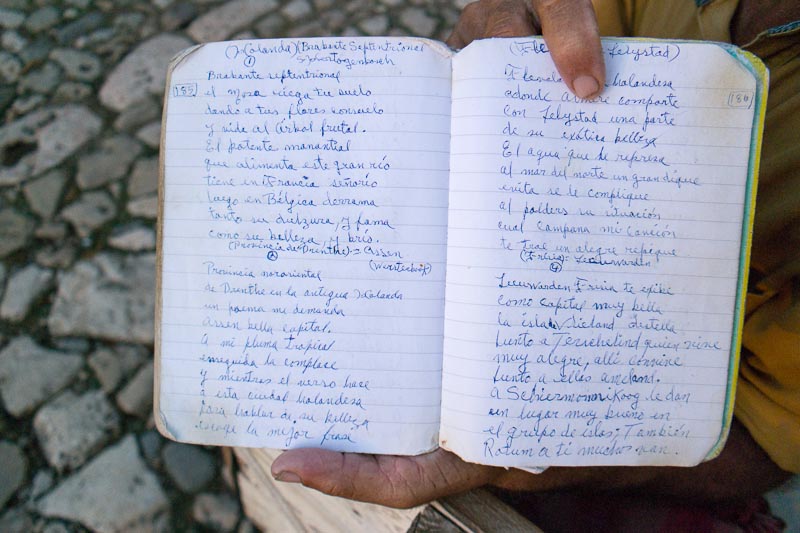 (Holanda) (Brabante Septentrional
① S-hertogenbosch
Brabante septentrional
185
el mosa riega tu suelo
dando a tus flores consuelo
y vida al árbol frutal.
El potente manantial
que alimenta este gran río
tiene en Francia señorío
luego en Bélgica derrama
tanto su dulzura, y fama
como su belleza, y brío.
(Provincia de Drenthe) = Assen
②
Provincia nororiental
de Drenthe en la antigua Holanda
un poema me demanda
Assen bella capital.
A mi pluma tropical
enseguida la complace
y mientras el verso hace
a esta ciudad holandesa
para hablar de su belleza
escoge la mejor frase
Lelystad)
holandesa
186
adonde Almere comparte
con Lelystad una parte
de su exótica belleza
El agua que se represa
al mar del norte un gran dique
evita se le complique
al polders su situación
cual campana mi canción
te trae un alegre repique.
(Frisia)= Leeuwarden
④
Leeuwarden Frisia te exibe
como capital muy bella
la isla Vlieland destella
Junto a Terschelind quien vive
muy alegre, allí convive
Junto a ellas ameland.
A Schiermonnikoog le dan
un lugar muy bueno en
el grupo de islas; También
Rotum a ti muchos van.